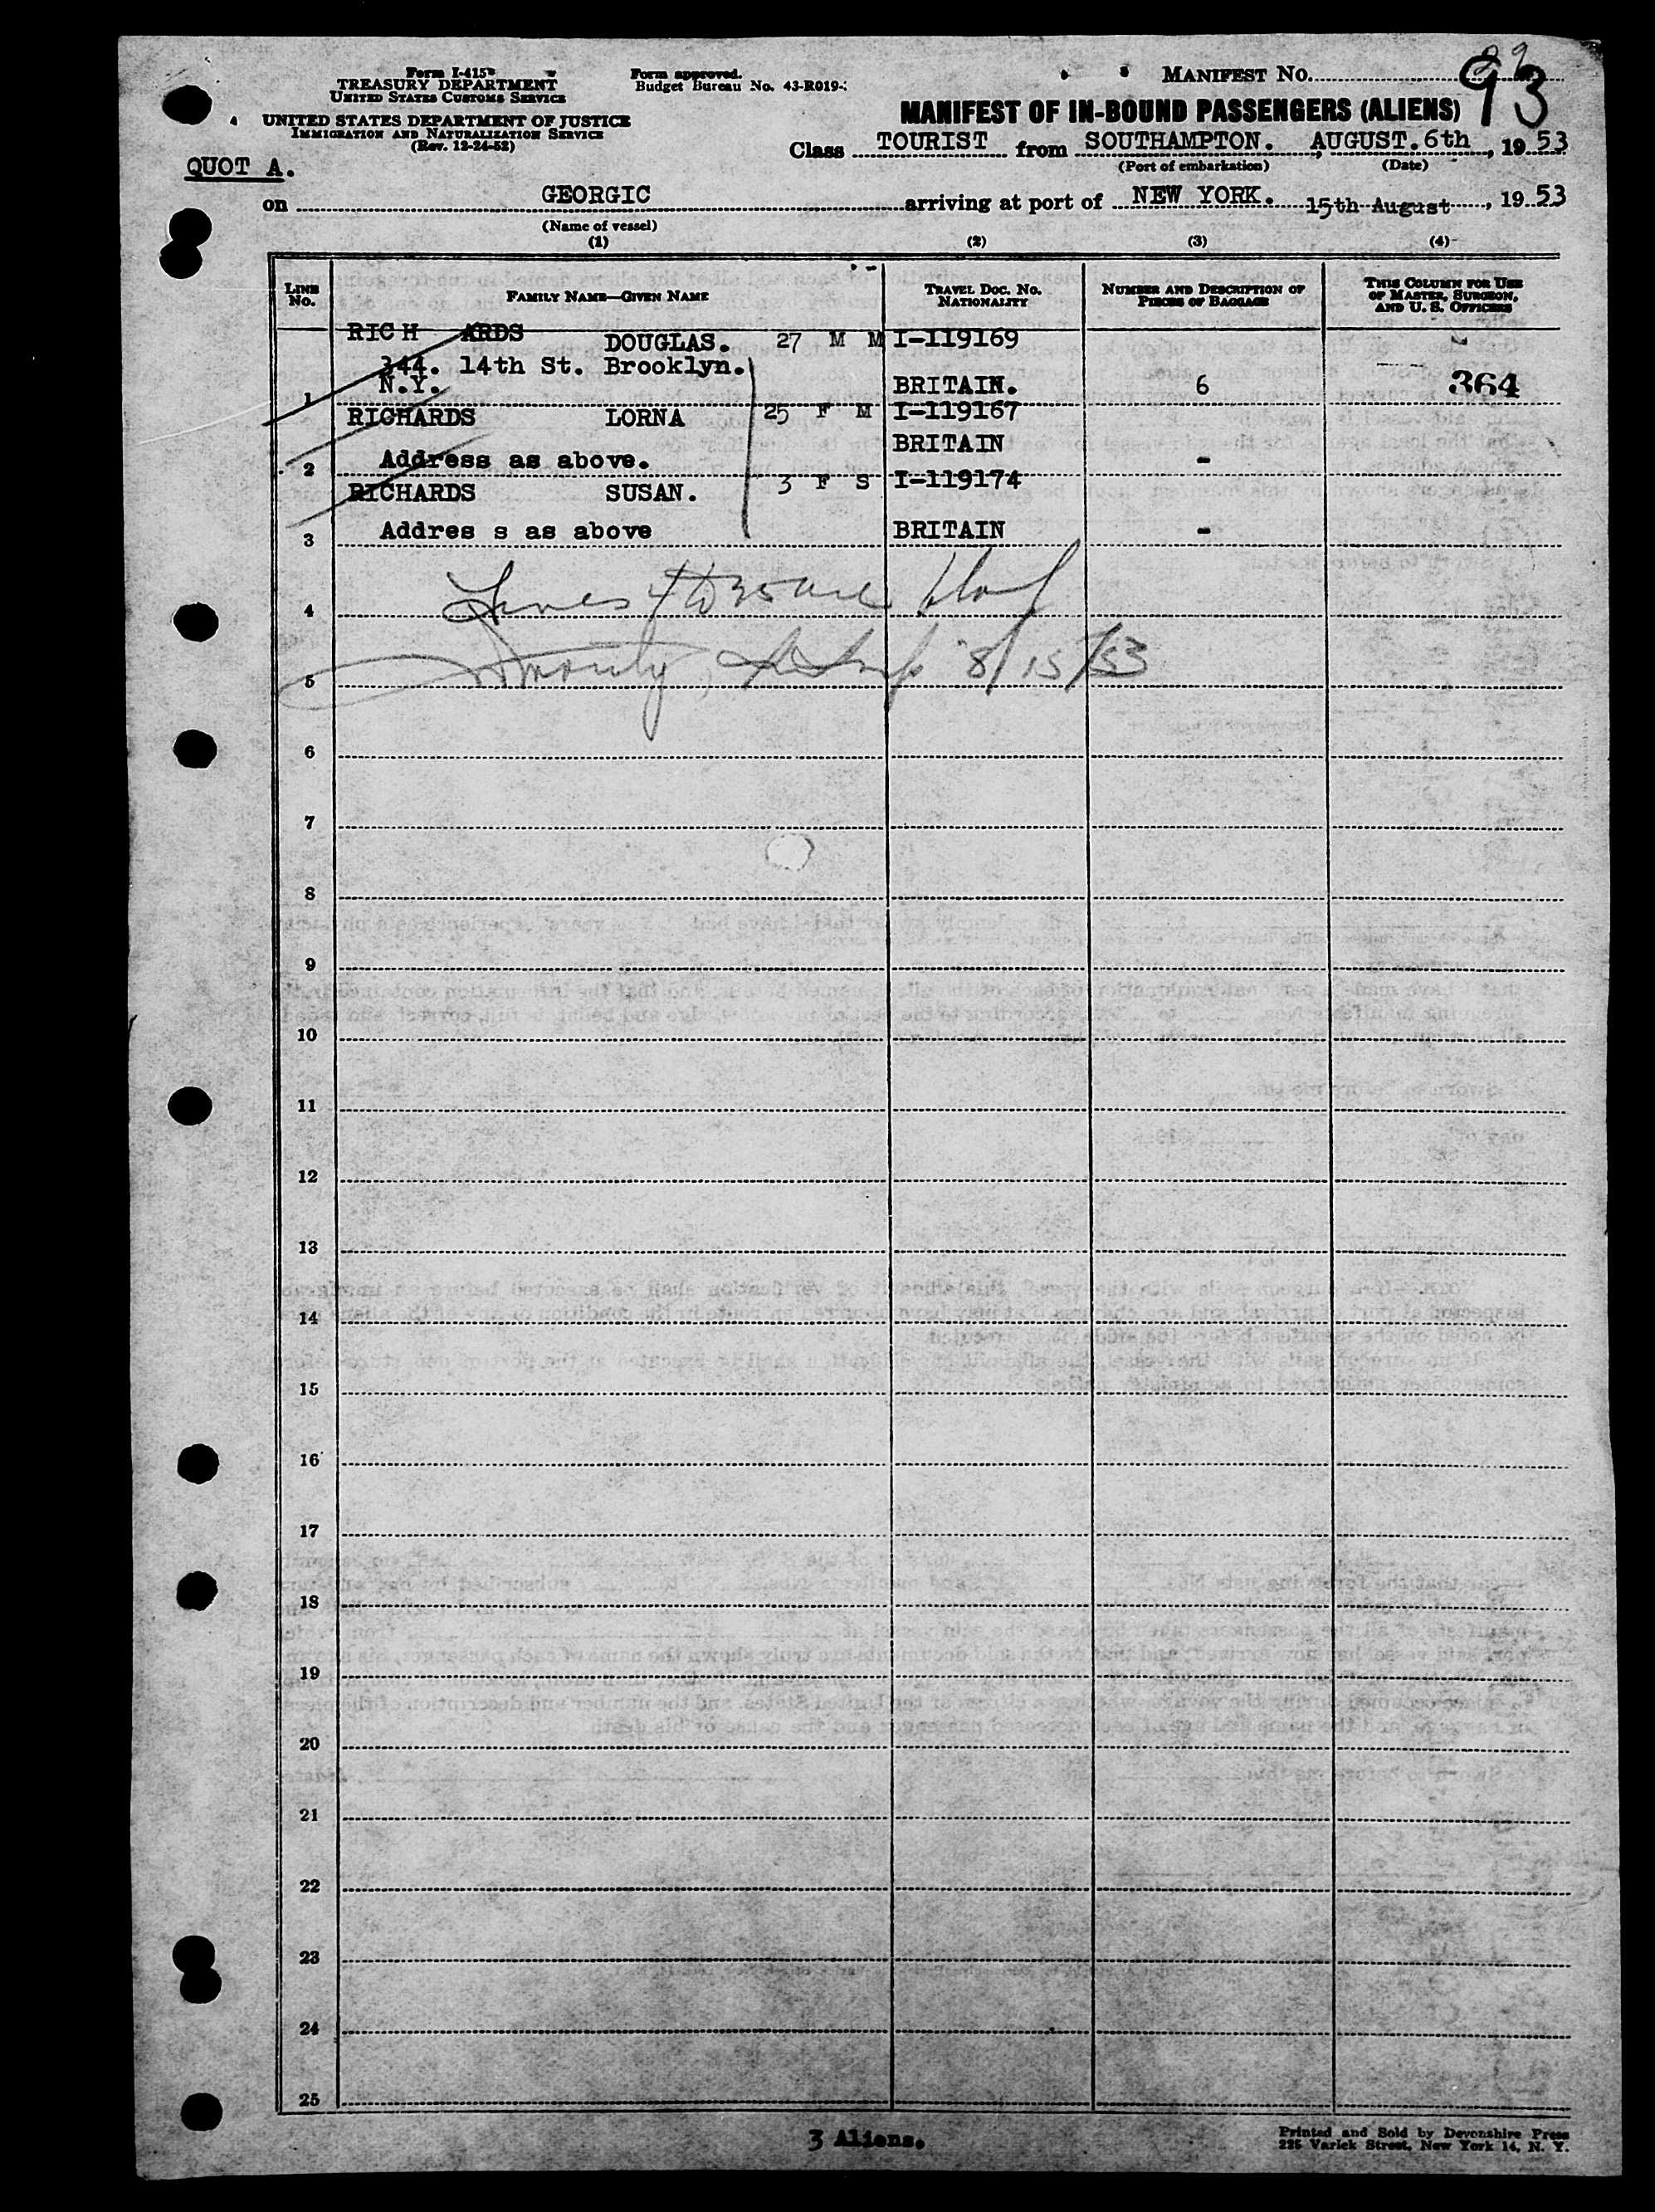 Form I-415
TREASURY DEPARTMENT
UNITED STATES CUSTOMS SERVICE
UNITED STATES DEPARTMENT OF JUSTICE
IMMIGRATION AND NATURALIZATION SERVICE
(Rev. 12-24-52)
Form approved.
Budget Bureau No. 43-R019-
MANIFEST No.
93
MANIFEST OF IN-BOUND PASSENGERS (ALIENS)
Class TOURIST from SOUTHAMPTON. AUGUST.6th, 1953
(Port of embarkation) (Date)
QUOT A.
on GEORGIC arriving at port of NEW YORK. 15th August, 1953
(Name of vessel)
(1) (2) (3) (4)
LINE No. FAMILY NAME—GIVEN NAME TRAVEL DOC. NO. NATIONALITY NUMBER AND DESCRIPTION OF PIECES OF BAGGAGE THIS COLUMN FOR USE OF MASTER, SURGEON, AND U. S. OFFICERS
RICH ARDS DOUGLAS. 27 M M I-119169
344. 14th St. Brooklyn.
1 N.Y. BRITAIN. 6 364
RICHARDS LORNA 25 F M I-119167
BRITAIN
2 Address as above. -
RICHARDS SUSAN. 3 F S I-119174
3 Addres s as above BRITAIN -
Lines
4
8/15/53
5
6
7
8
9
10
11
12
13
14
15
16
17
18
19
20
21
22
23
24
25
3 Aliens.
Printed and Sold by Devonshire Press
225 Varick Street, New York 14, N. Y.